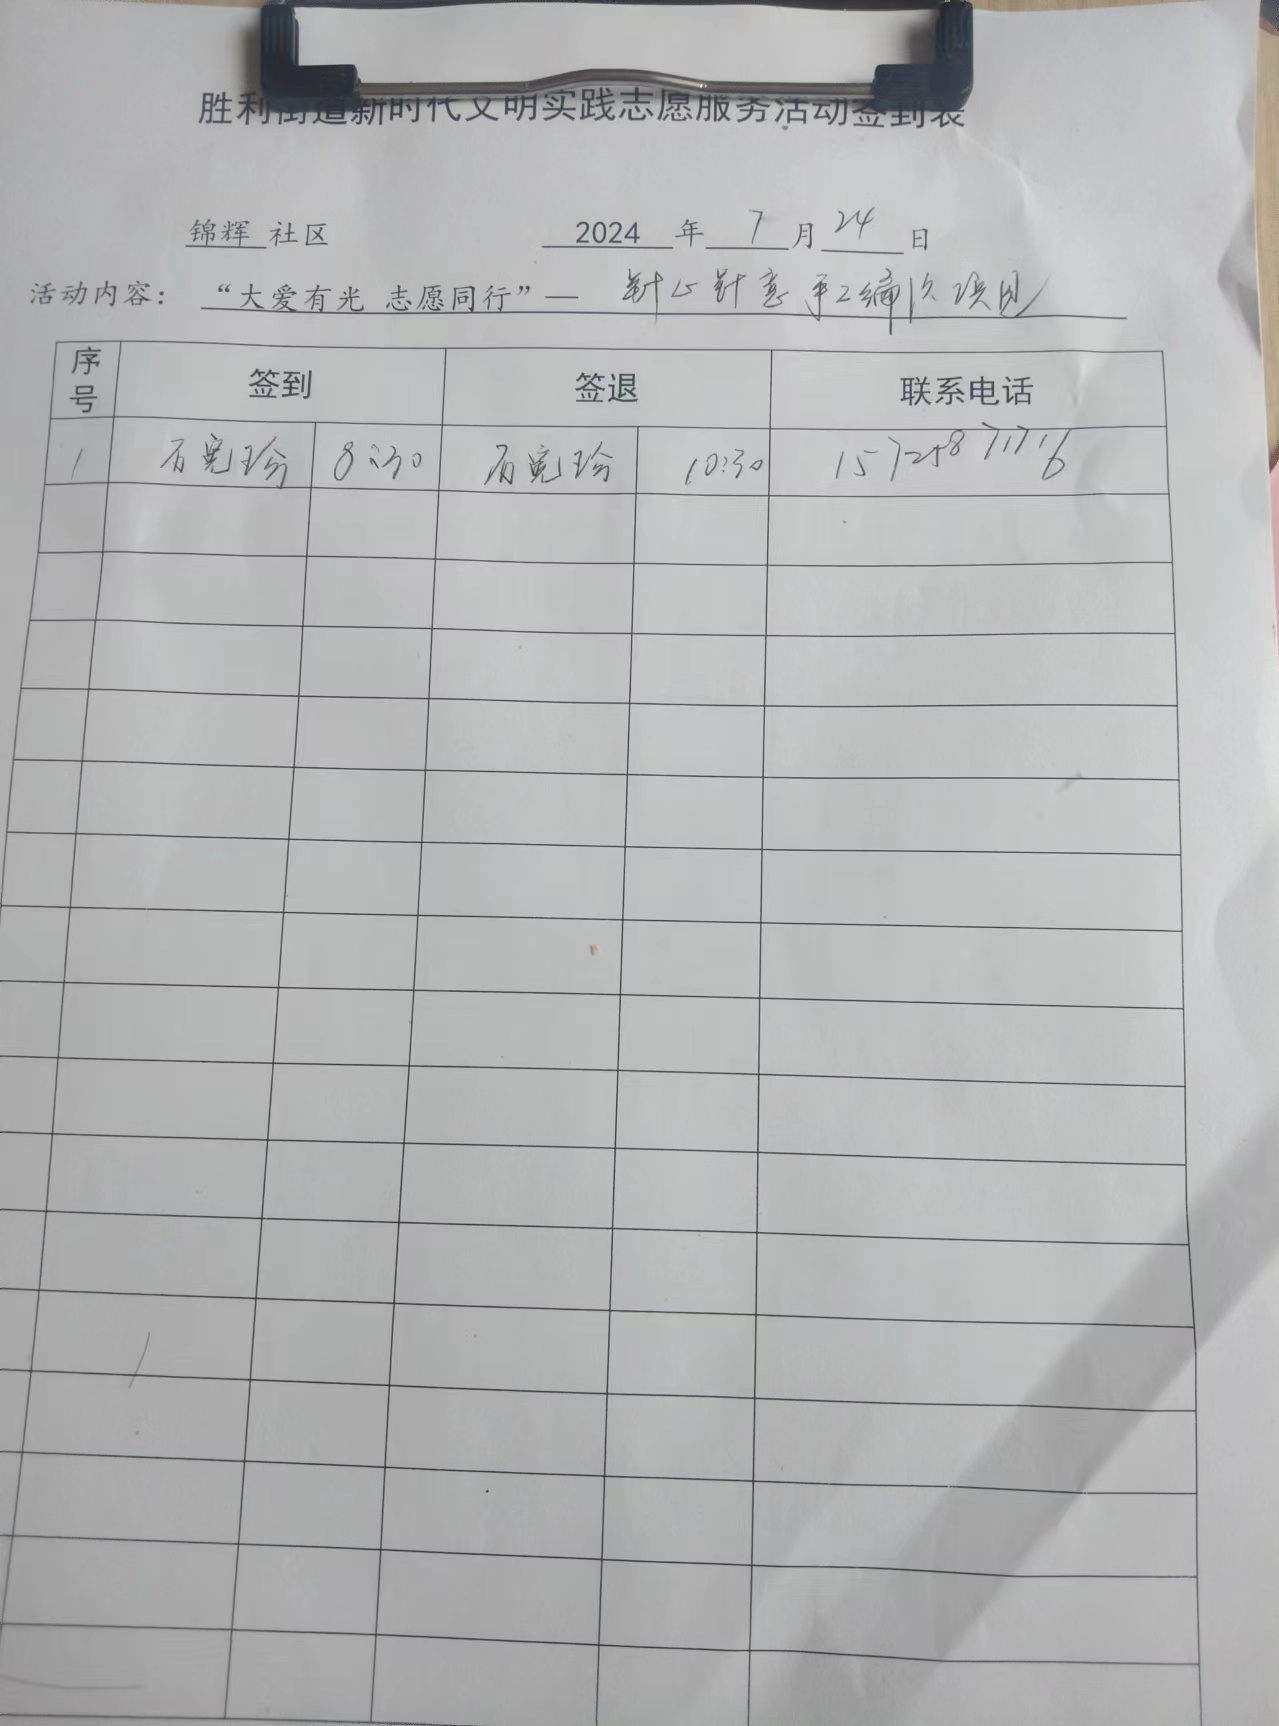 胜利街道新时代文明实践志愿服务活动签到表
锦辉 社区 2024 年 7 月 24 日
活动内容： “大爱有光 志愿同行”— 针心针意手工编织项目
序号 签到 签退 联系电话
1 石宪珍 8:30 石宪珍 10:30